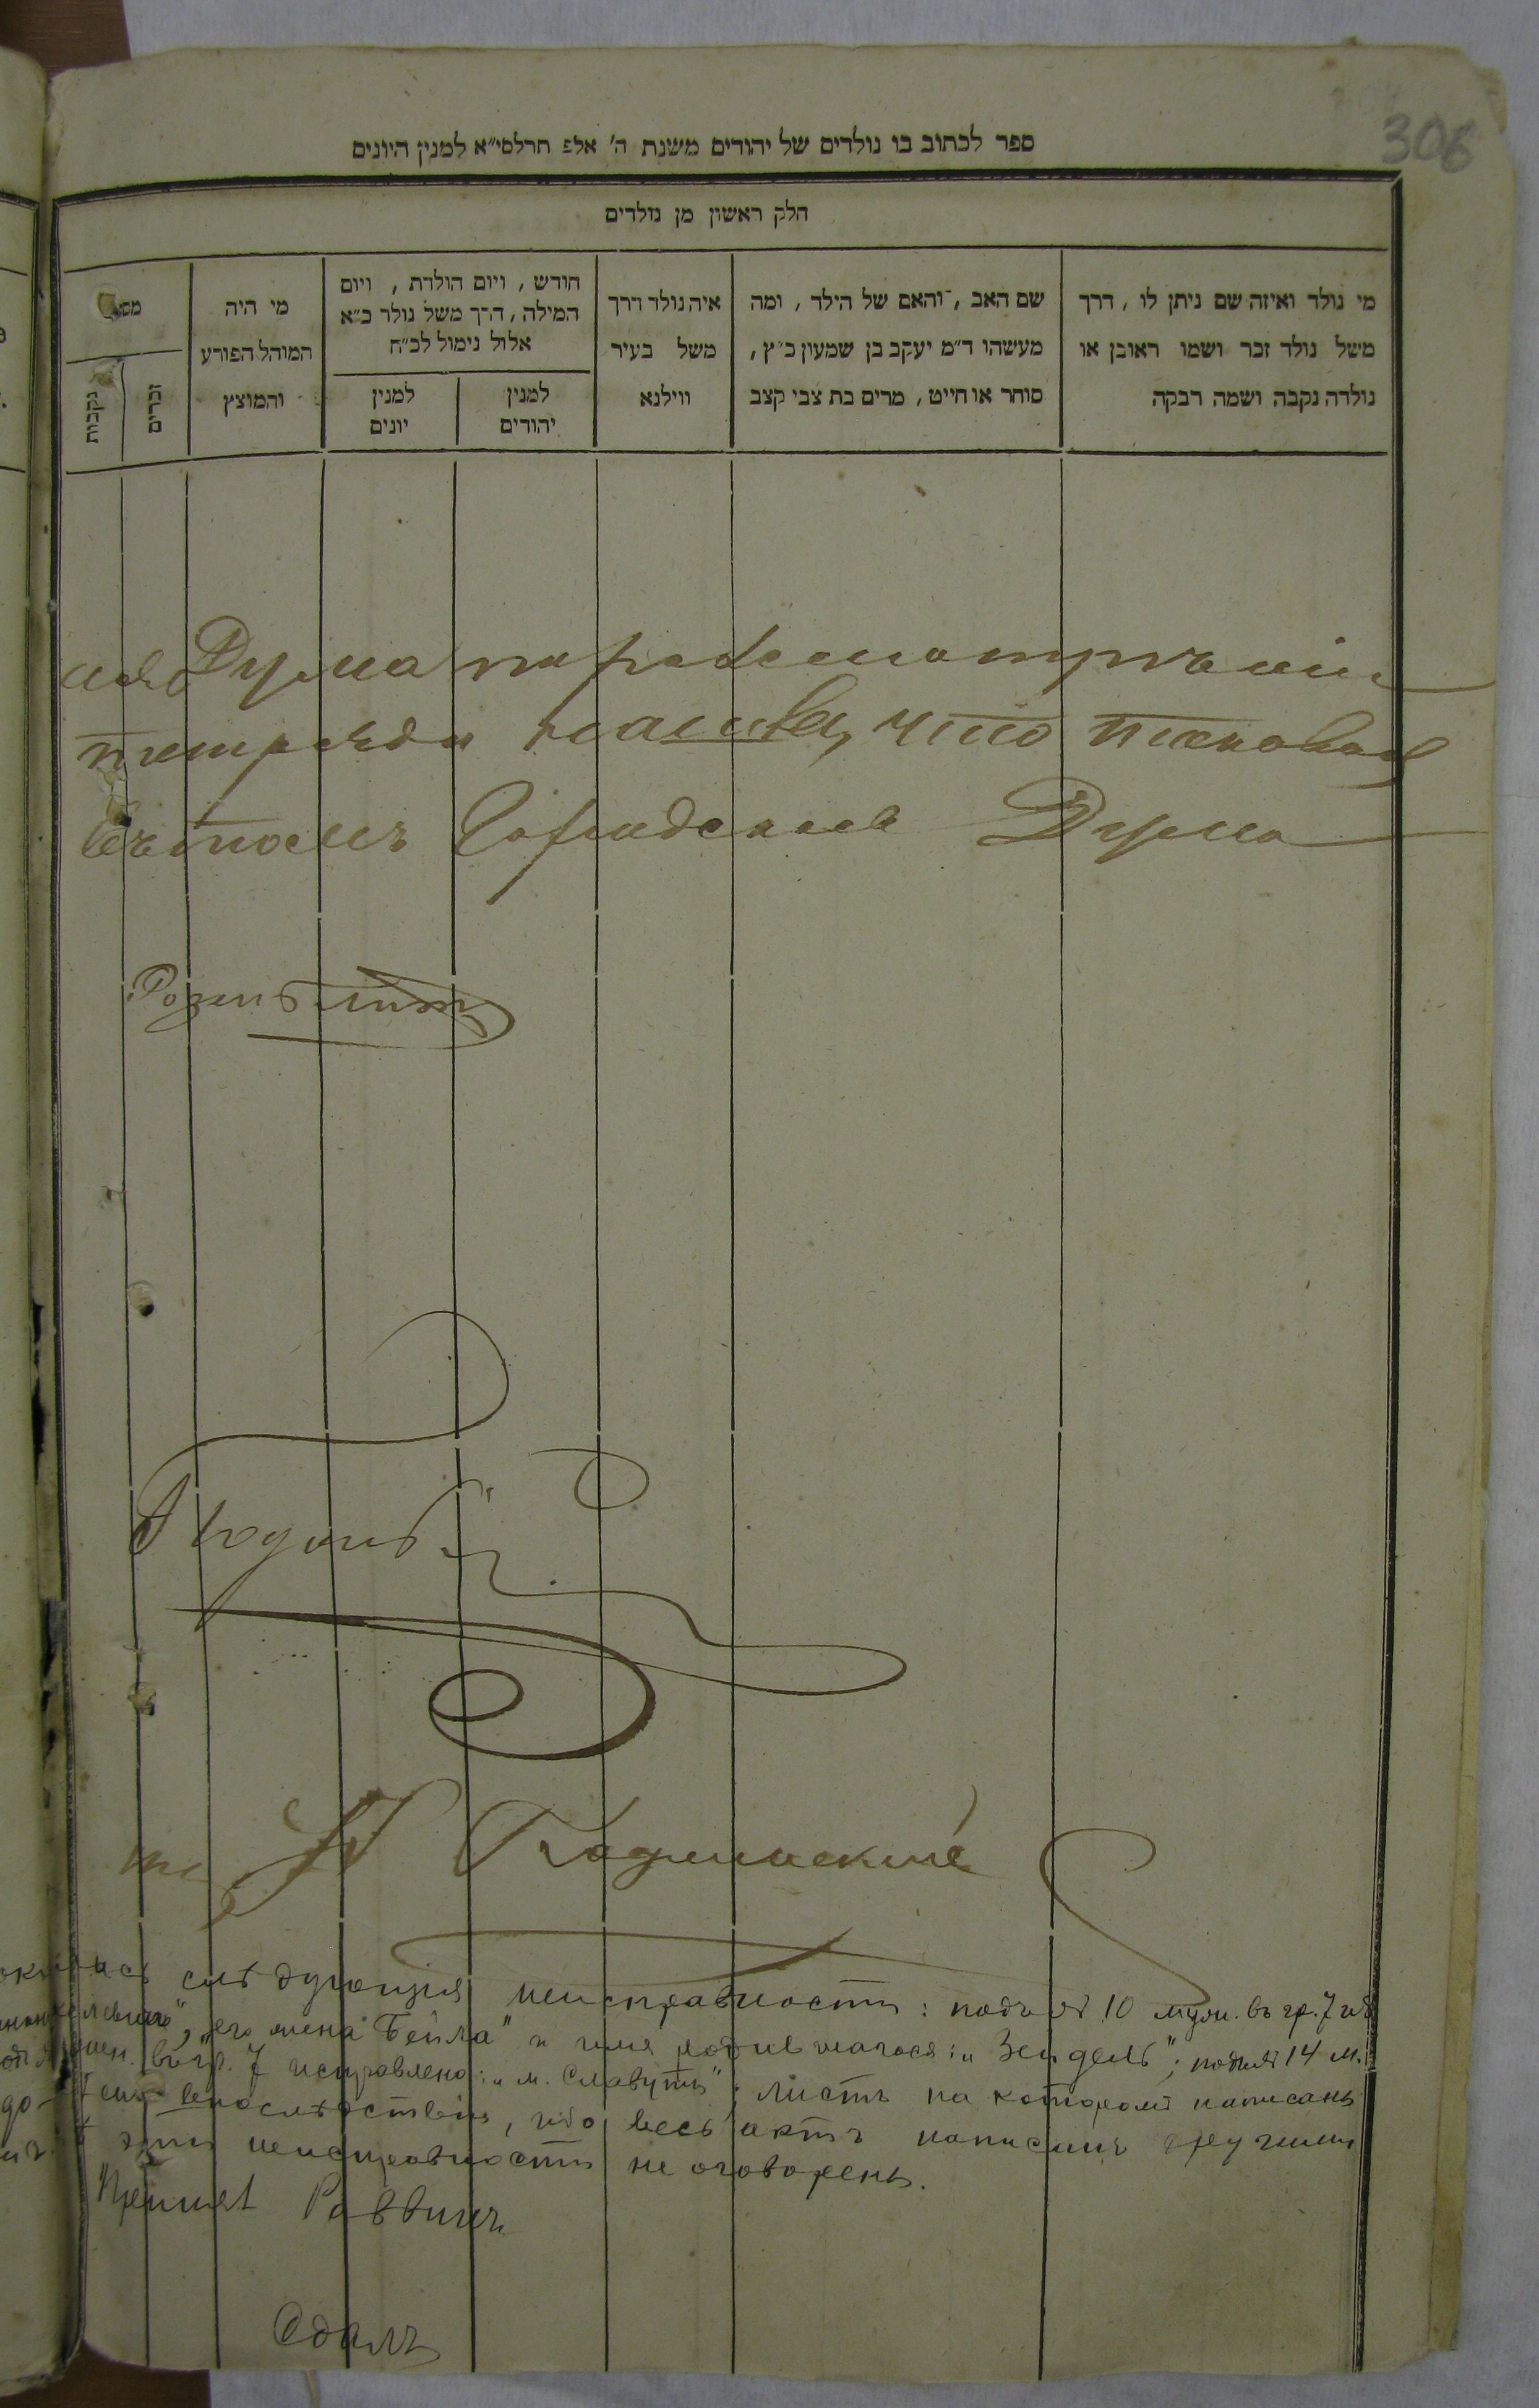 306
ספר לכתוב בו נולדים של יהודים משנת ה' אלפ תרלסי״א למנין היונים
חלק ראשון מן נולדים
מי נולד ואיזה שם ניתן לו, דרך
משל נולד זכר ושמו ראובן או
נולדה נקבה ושמה רבקה
שם האב, והאם של הילד, ומה
מעשהו ד״מ יעקב בן שמעון כ״ץ,
סוחר או חייט, מרים בת צבי קצב
איה נולד דרך
משל בעיר
ווילנא
חודש, ויום הולדת, ויום
המילה, ד״ך משל נולד כ״א
אלול נימול לכ״ח
למנין
יהודים
למנין
יונים
מי היה
המוהל הפורע
והמוצץ
זכרים
נקבות
Дума по разсмотрѣніи
тетради нашла, что таковая
въ томъ Городская Дума
слѣдующія неисправности: подъ № 10 муж. въ гр. 7 и 8
его жена Бейла" и имя родившагося: "Зейдель"; подъ № 14 м.
въ гр. 7 исправлено: "м. Славуты"; листъ на которомъ написанъ
впослѣдствіи, ибо весь актъ написанъ другими
эти неисправности не оговорены.
Принялъ Раввинъ
Сдалъ